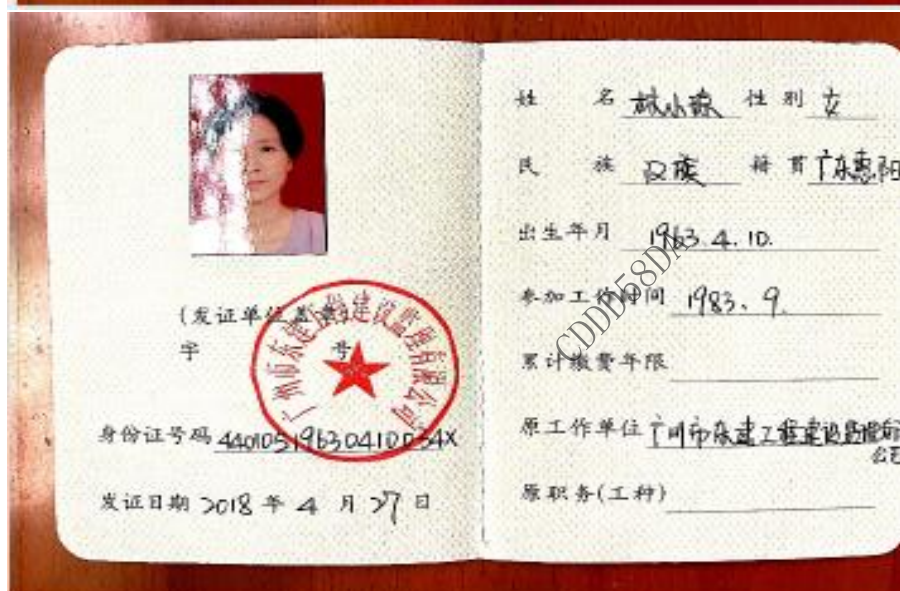 (发证单位盖章)
字 号
广州市东建工程建设监理有限公司
身份证号码 44010519630410034X
发证日期 2018 年 4 月 27 日
姓 名 林小琼 性 别 女
民 族 汉族 籍 贯 广东惠阳
出生年月 1963.4.10.
参加工作时间 1983.9.
累计缴费年限
原工作单位 广州市东建工程建设监理有
公司
原职务(工种)
CDDD58D